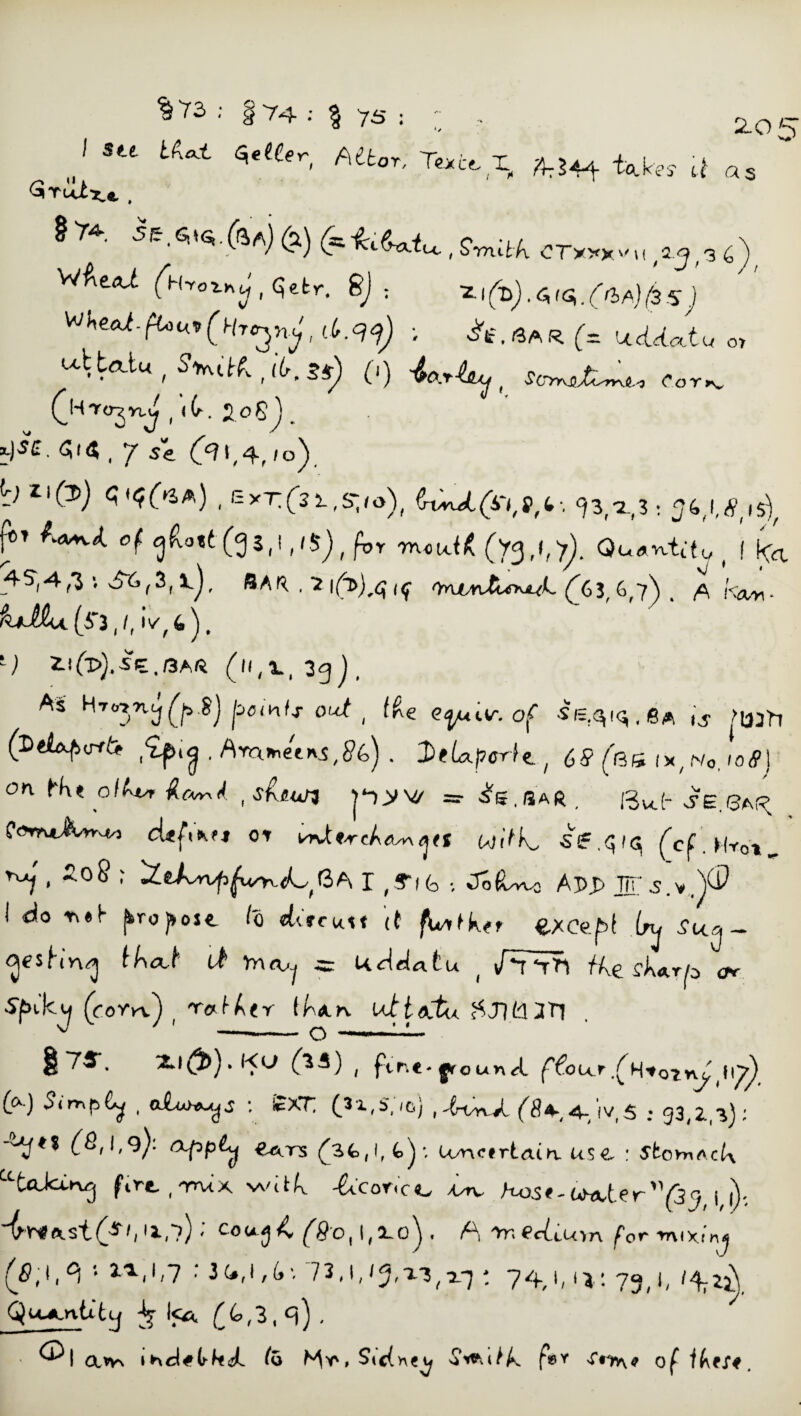 §73 : §74 : § 75 :
205
I see that Geller, Altor. Texte, I, 344 takes it as
Grütze.
§ 74. ŠE.GIG.(BA) (2) (= kibatu, Smith CTxxxvii, 29, 36),
Wheat (Hrozný, Getr. 8) : ZI(D).GIG.(BA)(35)
Wheat-flour (Hrozný, ib. 99) : ŠE.BAR (= uddatu or
uttatu, Smith, ib. 25) (1) barley, sometimes corn
(Hrozný, ib. 208).
a) ŠE.GIG, 7 še (91,4,10).
b) ZI(D) GIG(BA), EXT. (31,5,10), bind (51,8,6 : 93,2,3 : 96,1,8,15),
for hand of ghost (93,1,15), for mouth (73,1,7). Quantity, 1 Ka
(45,4,3 : 56,3,1), BAR . ZI(D).GIG mentioned (63,6,7). A kam-
(53,1,iv,6).
c) ZI(D).ŠE.BAR (11,1,39).
As Hrozný (p.8) points out, the equiv. of ŠE.GIG.BA is חנטן
(Delaporte, Epig. Araméens, 86). Delaporte, 68 (BE ix, No. 108)
on the other hand, shews שערן = ŠE.BAR. But ŠE.BAR
sometimes defines or interchanges with ŠE.GIG (cf. Hroz-
ný, 208 ; BA I, 516 : Johns ADD III s.v.)①
I do not propose to discuss it further except by sug-
gesting that it may = uddatu, the sharp or
spiky (corn), rather than uttatu
— o —
§ 75. ZI(D).KU (33), fine-ground flour (Hrozný, 117).
(a) Simply, always : EXT. (31,5,10), bind (84,4,iv,5 : 93,2,3) :
eyes (8,1,9) : apply ears (36,1,6) : uncertain use : stomach
"taking fire, mix with licorice in rose-water" (39,1,1) :
breast (51,12,7) : cough (80,1,20). A medium for mixing
(8,1,9 : 22,1,7 : 36,1,6 : 73,1,19,23,27 : 74,1,12 : 79,1,14,22).
Quantity ½ ka (6,3,9).
① I am indebted to Mr. Sidney Smith for some of these.